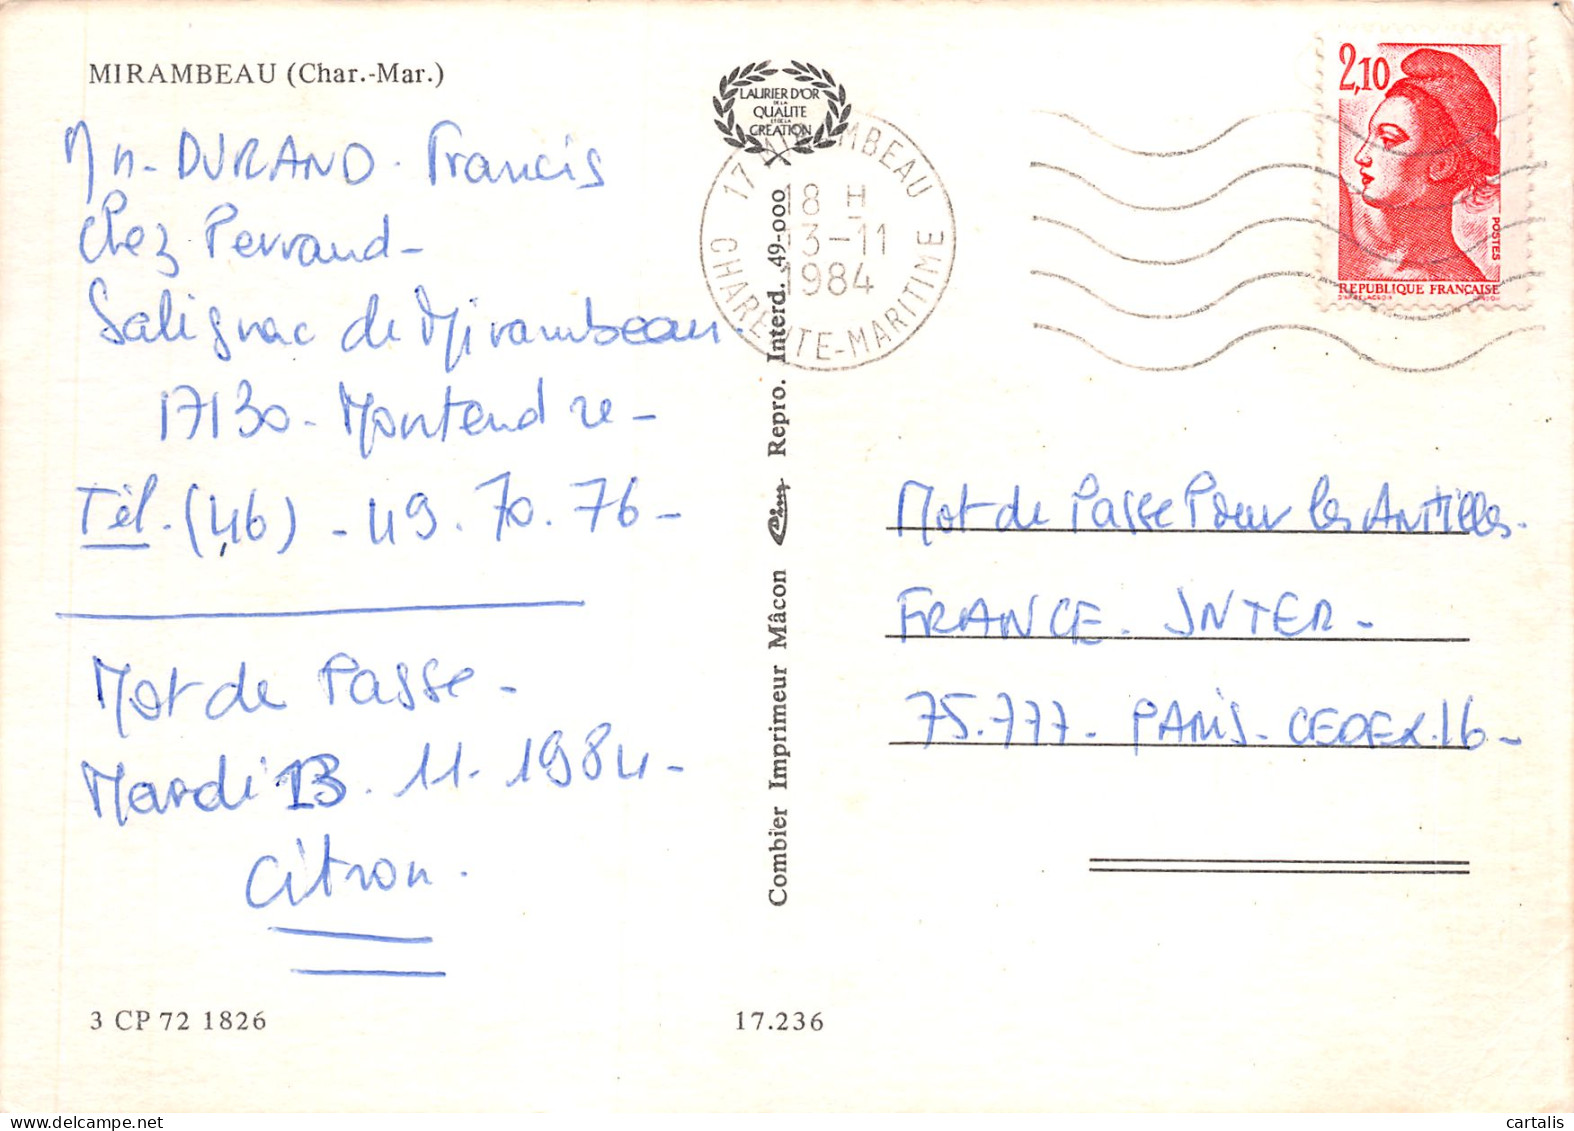 MIRAMBEAU (Char.-Mar.)
Mr. DURAND. Francis
Chez Perraud-
Salignac de Mirambeau.
17130- Montendre-
Tél. (46) - 49. 70. 76-
Mot de Passe-
Mardi 13. 11. 1984-
Citron.
3 CP 72 1826
LAURIER D'OR
DE LA
QUALITE
ET DE LA
CREATION
17 MIRAMBEAU
18 H
13-11
1984
CHARENTE-MARITIME
Combier Imprimeur Mâcon Cim Repro. Interd. 49-000
17.236
2,10
POSTES
REPUBLIQUE FRANÇAISE
Mot de Passe Pour les Antilles.
FRANCE. INTER-
75.777- PARIS- CEDEX.16-
cartalis